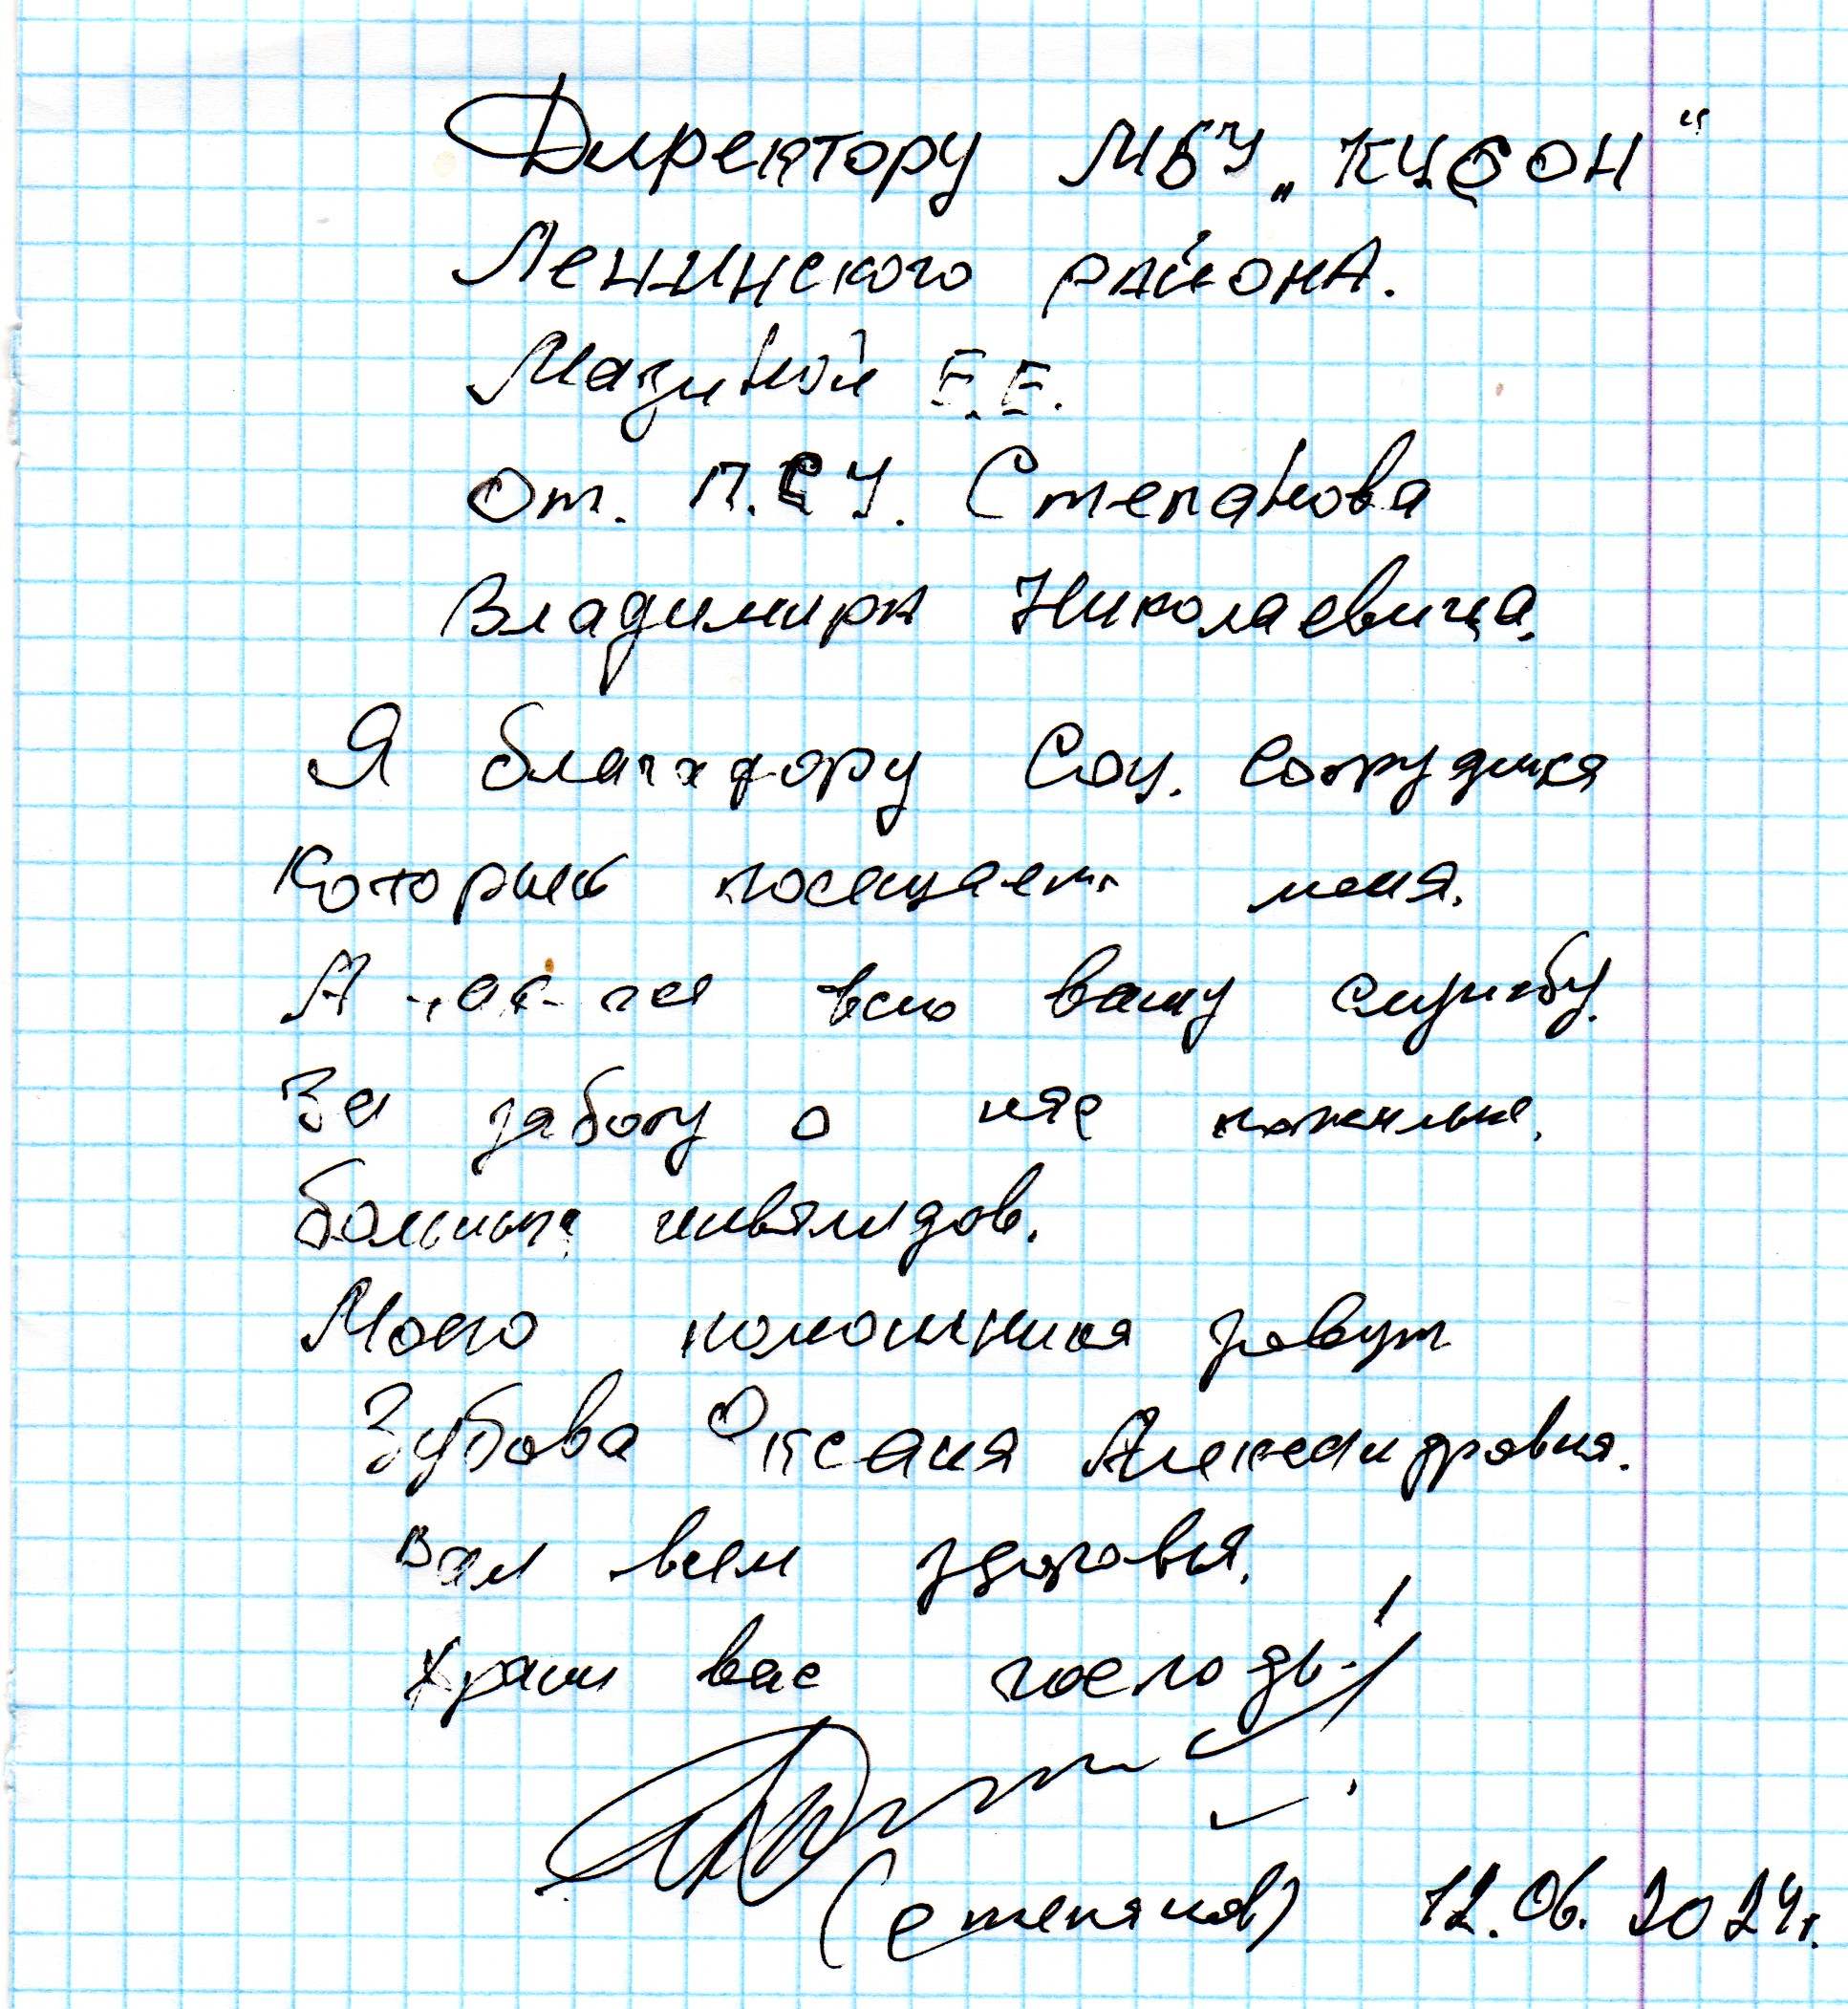 Директору МБУ „КЦСОН"
Ленинского района.
Мазиной Е.Е.
От. П.С У. Степанова
Владимира Николаевича.
Я благадору Соц. сотрудника
Которые посещает меня.
А так-же всю вашу службу.
За заботу о нас пожилых,
больных инвалидов.
Моего помошника зовут
Зубова Оксана Александравна.
Вам всем здоровья.
Храни вас господь!
(степанов) 12.06.2024г.